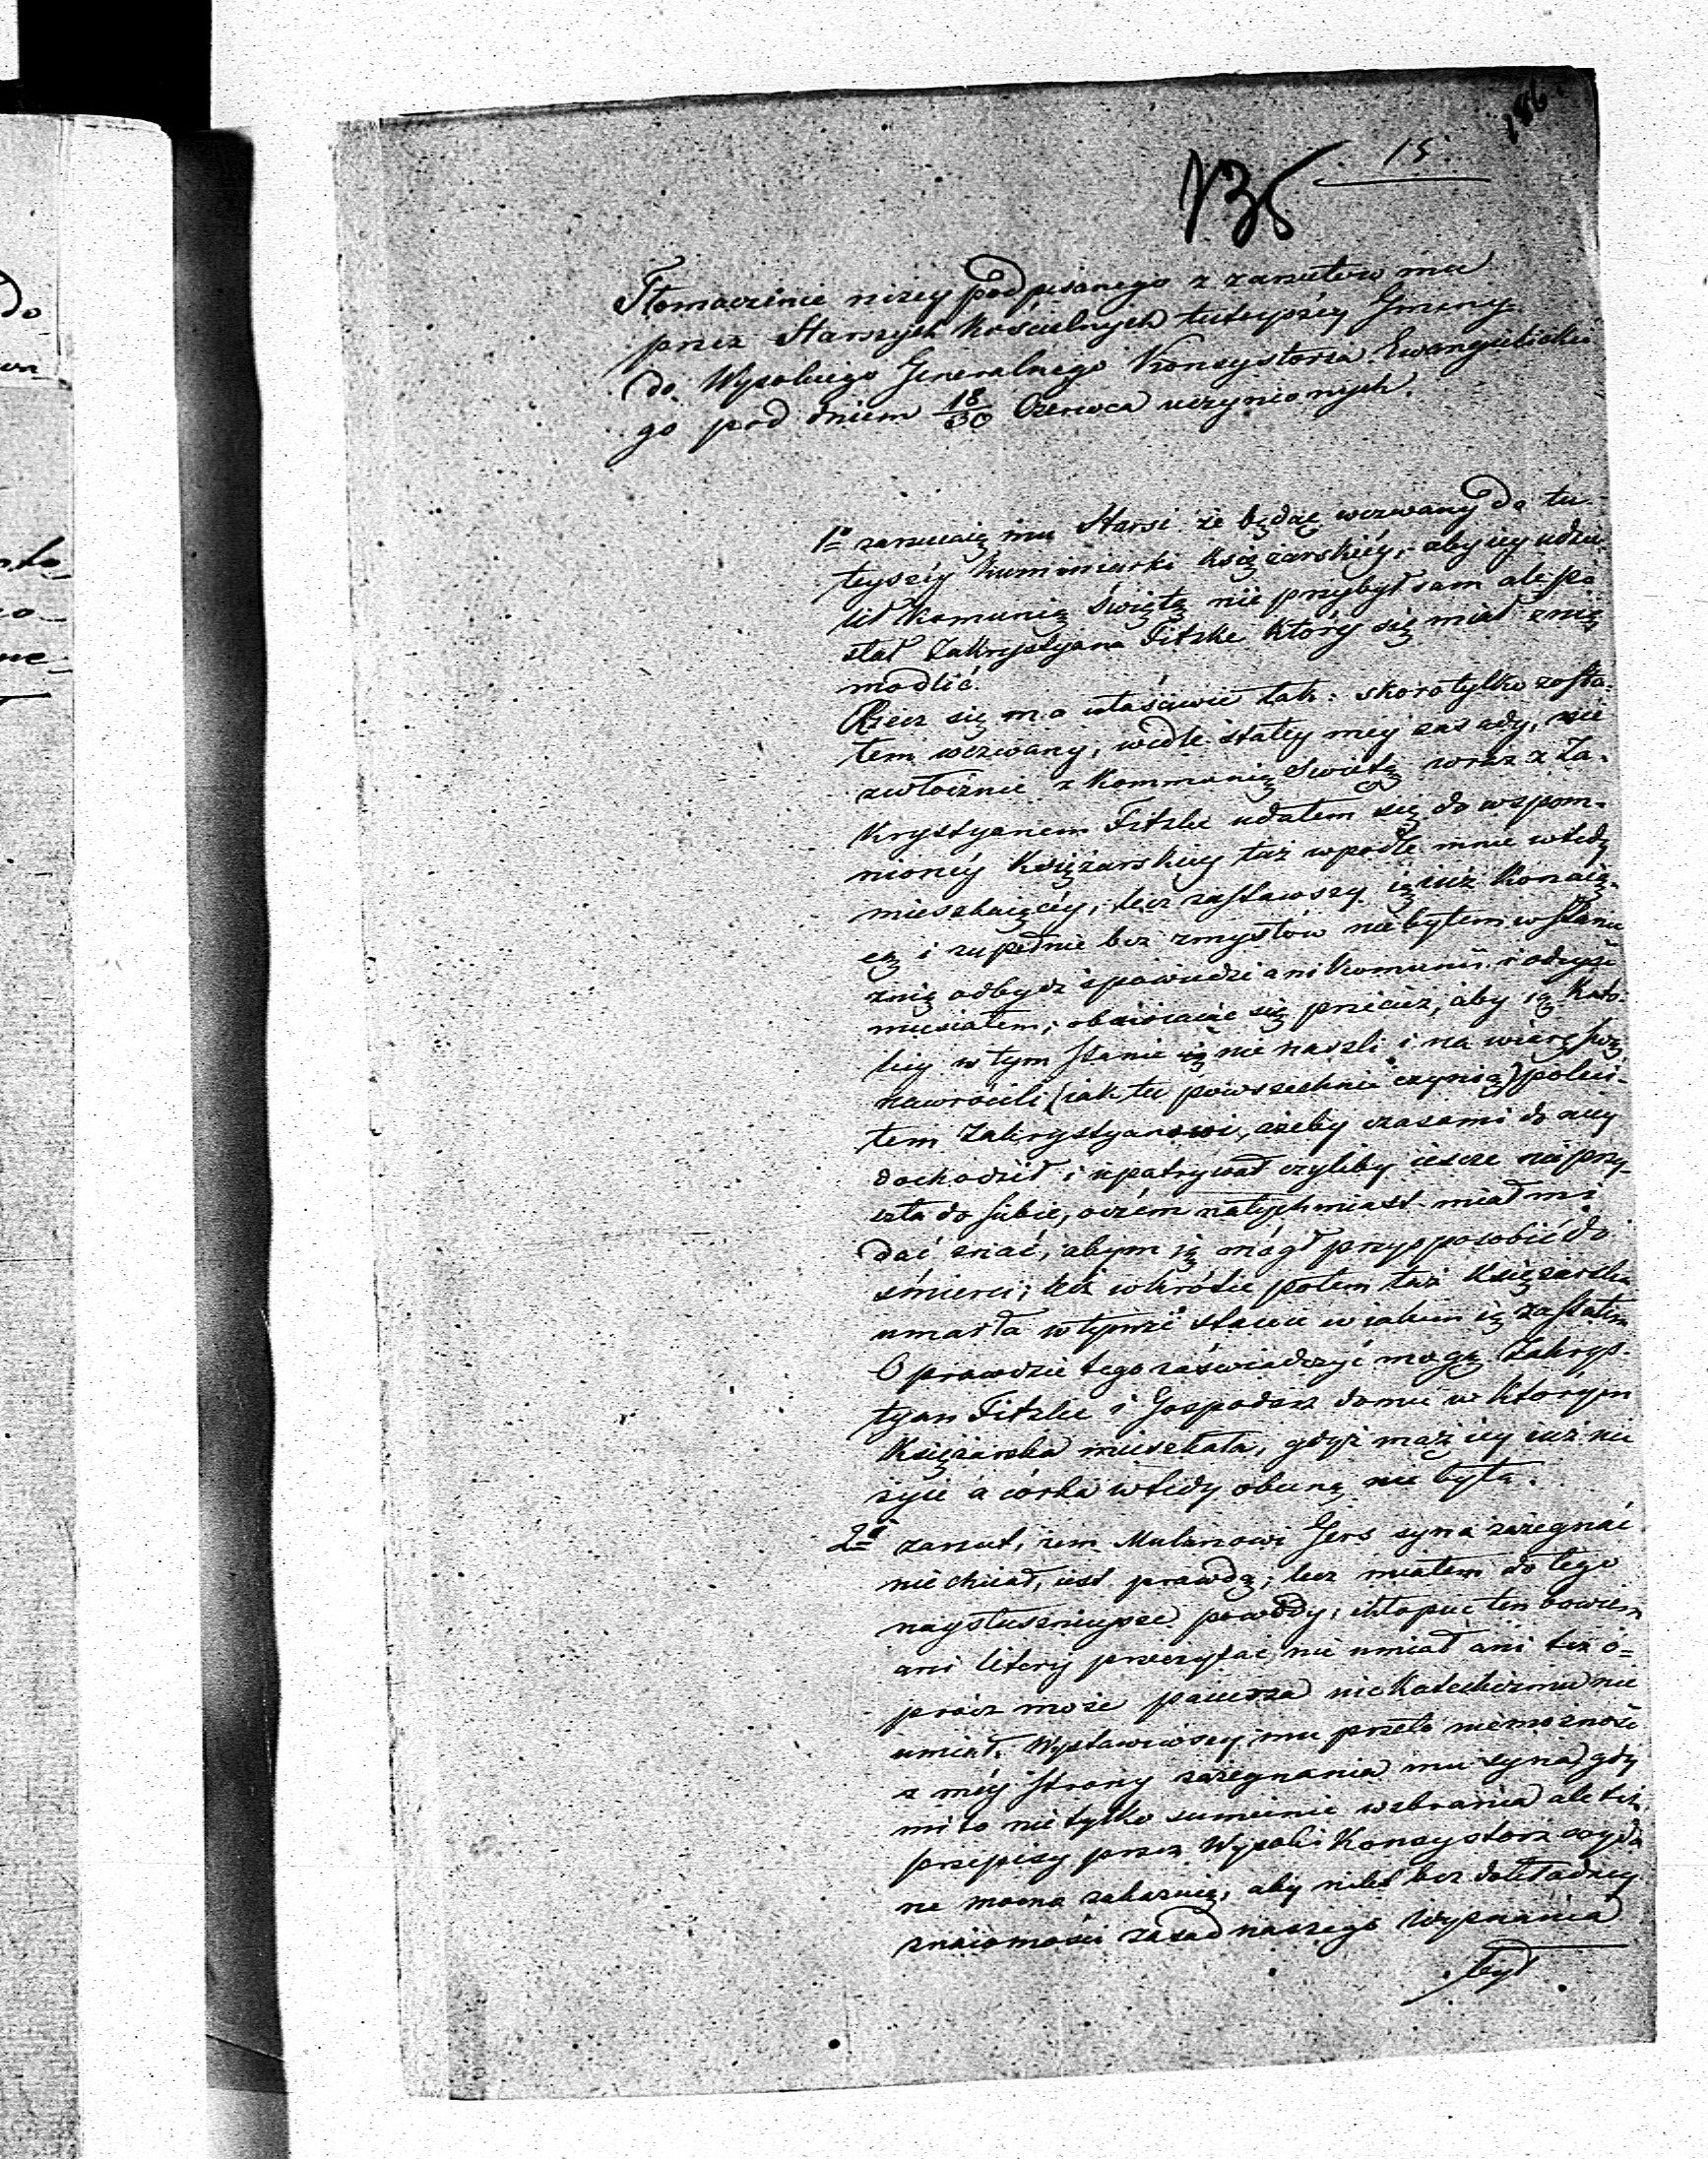 186.
15.
736
Tłomaczenie niżey podpisanego z zarzutów mu
przez Starszych Kościelnych tuteyszéy Gminy
do Wysokiego Generalnego Konsystorza Ewangielickie
go pod dniem 18/30 Czerwca uczynionych.
1o zarzucaią mu Starsi że będąc wezwany do tu
teyszéy Kominiarki Księżarskiéy, aby iéy udzie
lił Komunię Świętą nie przybył sam ale po
słał Zakrystyana Fitzke który się miał z nią
modlić.
Rzecz się ma właściwie tak: skoro tylko zosta-
łem wezwany, wedle stałey méy zasady, nie
zwłocznie z Kommunią Swiętą wraz z Za-
krystyanem Fitzke udałem się do wspom-
nionéy Księżarskiey tuż wpodle mnie wtedy
mieszkaiącéy, lecz zastawszy ią iuż konaią-
cą i zupełnie bez zmysłów nie byłem w stanie
z nią odbydź spowiedzi ani Komunii i odeyść
musiałem; obawiaiąc się przecież, aby ią Kato-
licy w tym stanie ią nie naszli i na wiarę swą
nawrócili (iak tu powszechnie czynią) poleci-
łem Zakrystyanowi, ażeby czasami do niey
dochodził i upatrywał czyliby iescze nie przy-
szła do siebie, oczém natychmiast miał mi
dać znać, abym ią mógł przysposobić do
śmierci; lecz wkrótce potem taż Księżarska
umarła w tymże stanie w iakim ią zastałem
O prawdzie tego zaświadczyć mogą Zakrys-
tyan Fitzke i Gospodarz domu w którym
Księżarska mieszkała, gdyż mąż iey iuż nie
żyie a córka wtedy obecną nie była.
2o zarzut, żem Mularzowi Gers syna zażegnać
nie chciał, iest prawdą; lecz miałem do tego
naysłusznieysze powody; chłopiec ten bowiem
ani litery przeczytać nie umiał ani też o-
prócz może pacierza nic Katechizmu nie
umiał. Wystawiwszy mu przeto niemożność
z méy strony zażegnania mu syna, gdy
mi to nie tylko sumienie wzbrania ale też
przepisy przez Wysoki Konsystorz wyda
ne mocno zakazuią, aby nikt bez dokładney
znaiomości zasad naszego Wyznania
był